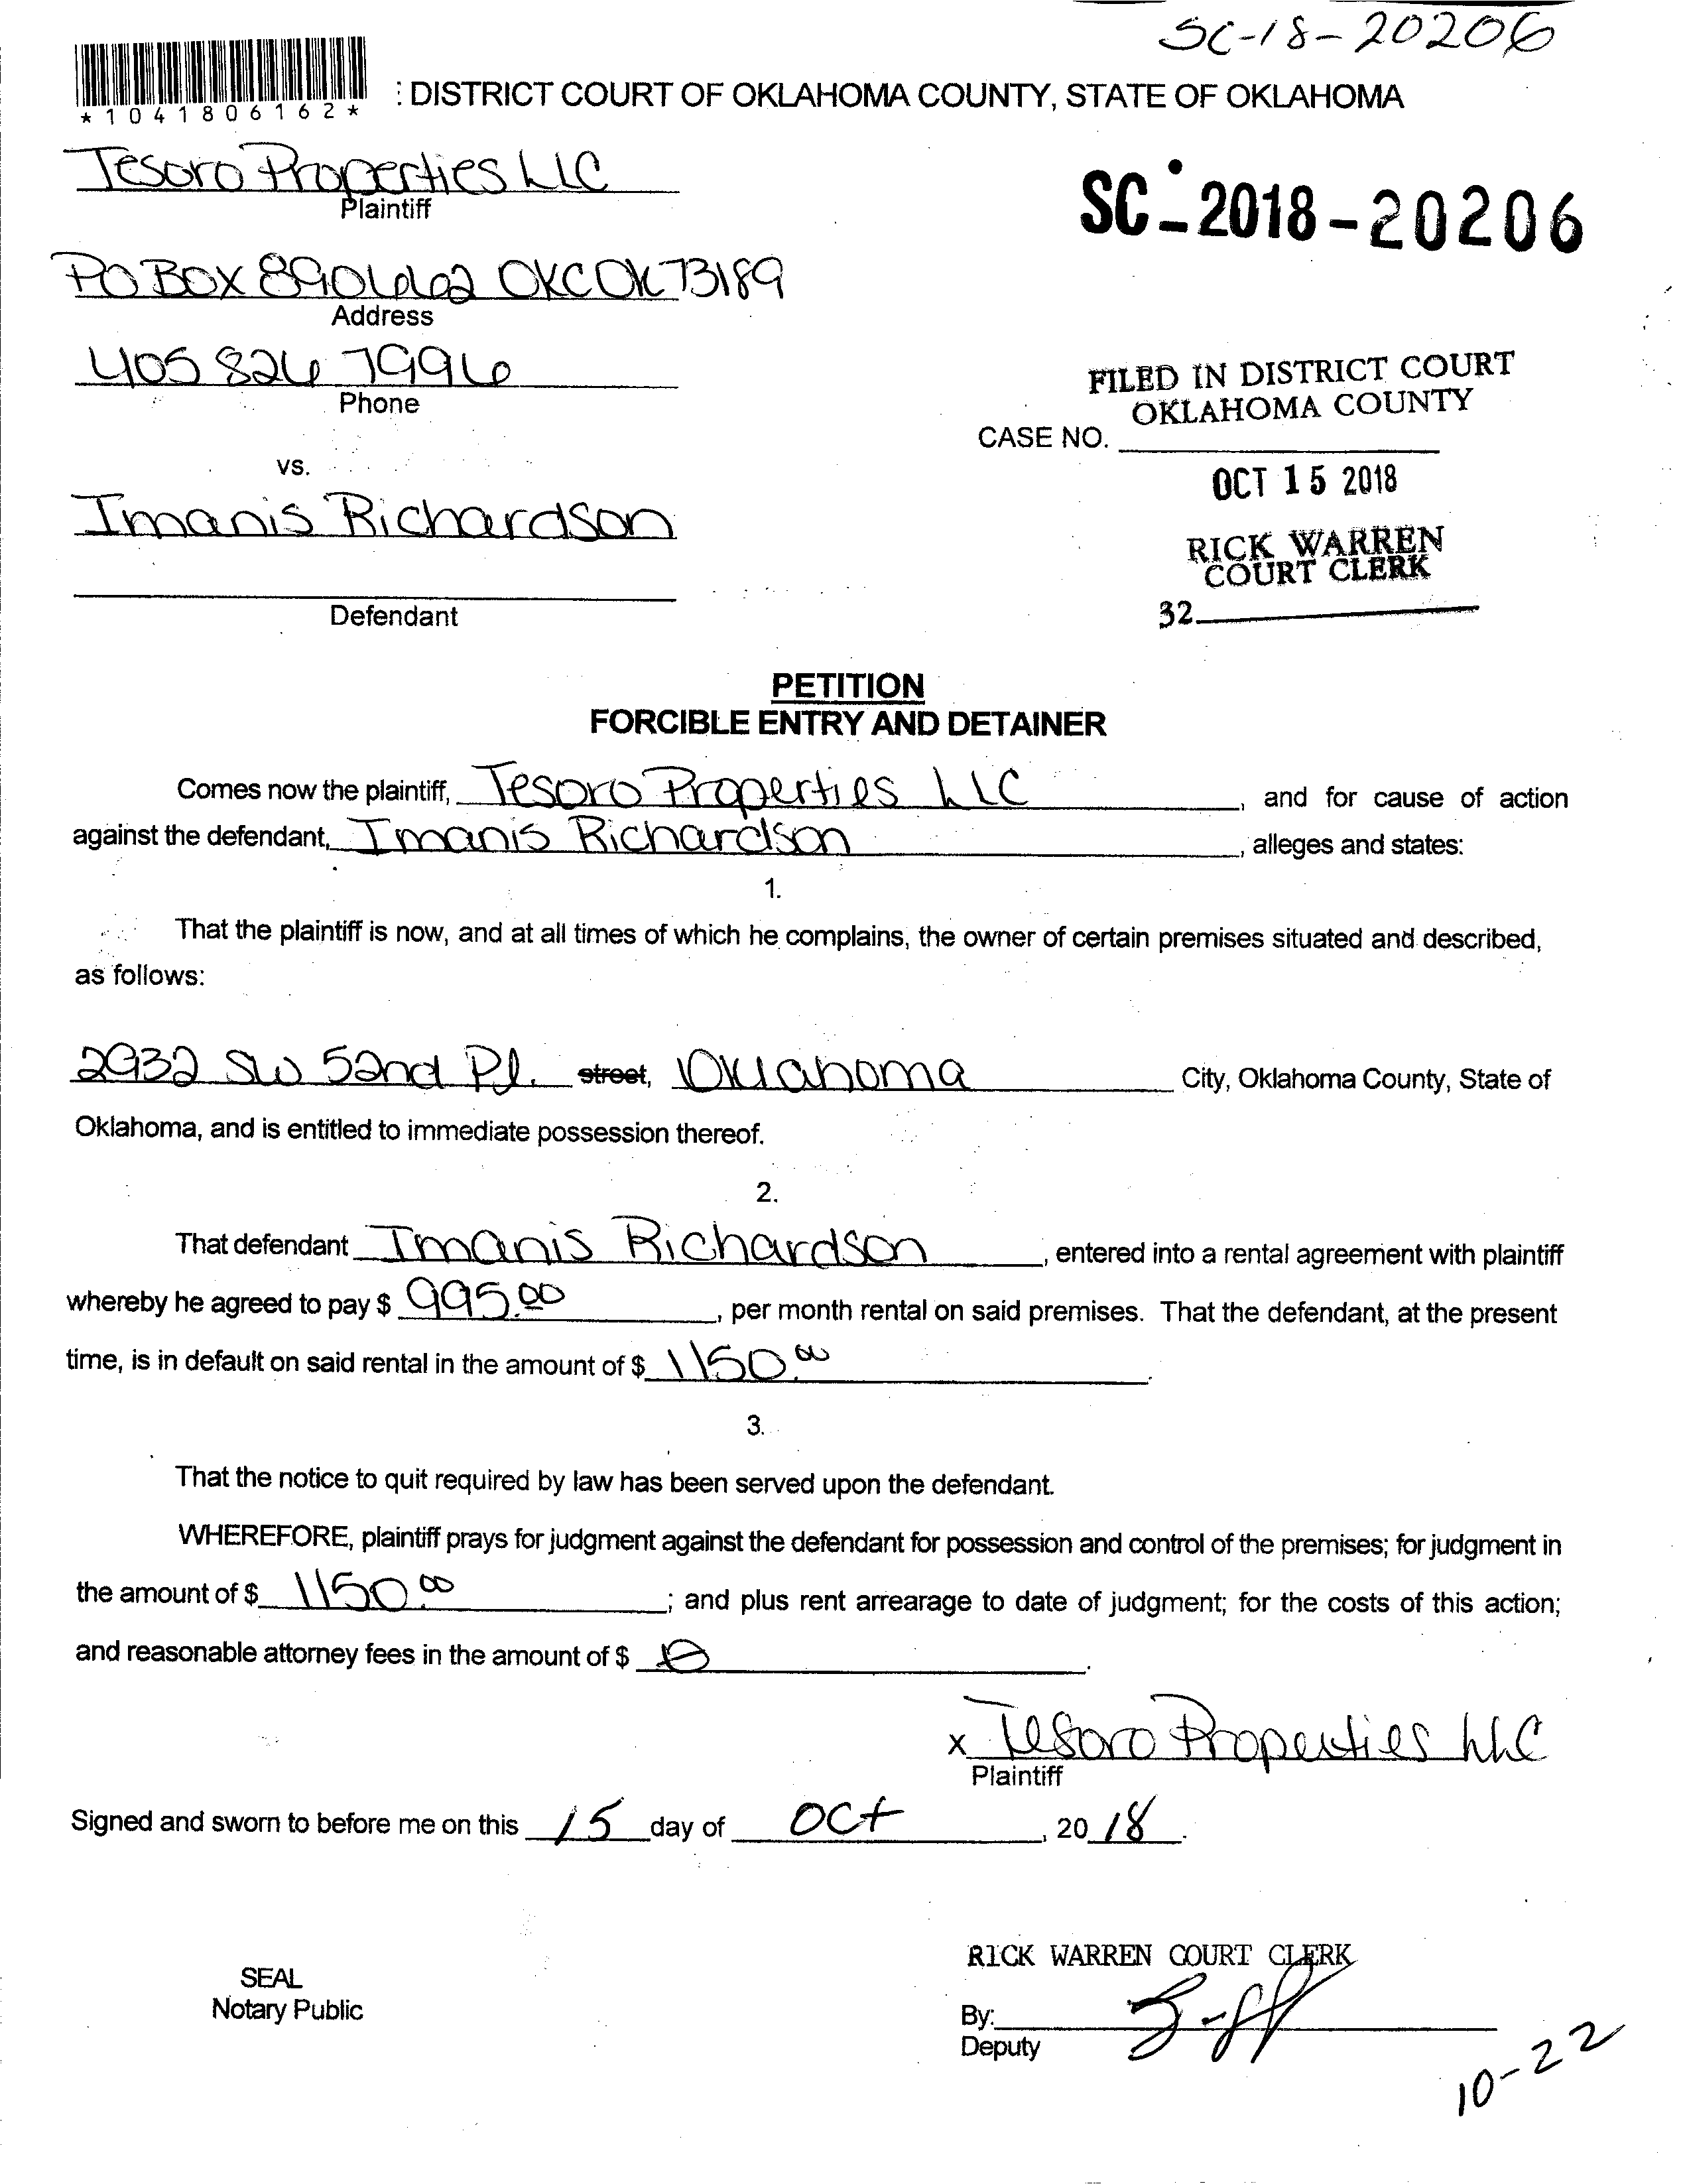 SC-18-20206
*1041806162*
: DISTRICT COURT OF OKLAHOMA COUNTY, STATE OF OKLAHOMA
Tesoro Properties LLC
Plaintiff
SC-2018-20206
PO BOX 890662 OKC OK 73189
Address
405 826 7996
Phone
FILED IN DISTRICT COURT
OKLAHOMA COUNTY
CASE NO.
vs.
OCT 15 2018
Imanis Richardson
RICK WARREN
COURT CLERK
Defendant
32
PETITION
FORCIBLE ENTRY AND DETAINER
Comes now the plaintiff, Tesoro Properties LLC, and for cause of action
against the defendant, Imanis Richardson, alleges and states:
1.
That the plaintiff is now, and at all times of which he complains, the owner of certain premises situated and described,
as follows:
2932 SW 52nd Pl. street, Oklahoma City, Oklahoma County, State of
Oklahoma, and is entitled to immediate possession thereof.
2.
That defendant Imanis Richardson, entered into a rental agreement with plaintiff
whereby he agreed to pay $ 995.00, per month rental on said premises. That the defendant, at the present
time, is in default on said rental in the amount of $ 1150.00.
3.
That the notice to quit required by law has been served upon the defendant.
WHEREFORE, plaintiff prays for judgment against the defendant for possession and control of the premises; for judgment in
the amount of $ 1150.00; and plus rent arrearage to date of judgment; for the costs of this action;
and reasonable attorney fees in the amount of $ 0.
x Tesoro Properties LLC
Plaintiff
Signed and sworn to before me on this 15 day of Oct, 2018.
RICK WARREN COURT CLERK
SEAL
Notary Public
By:
Deputy
10-22